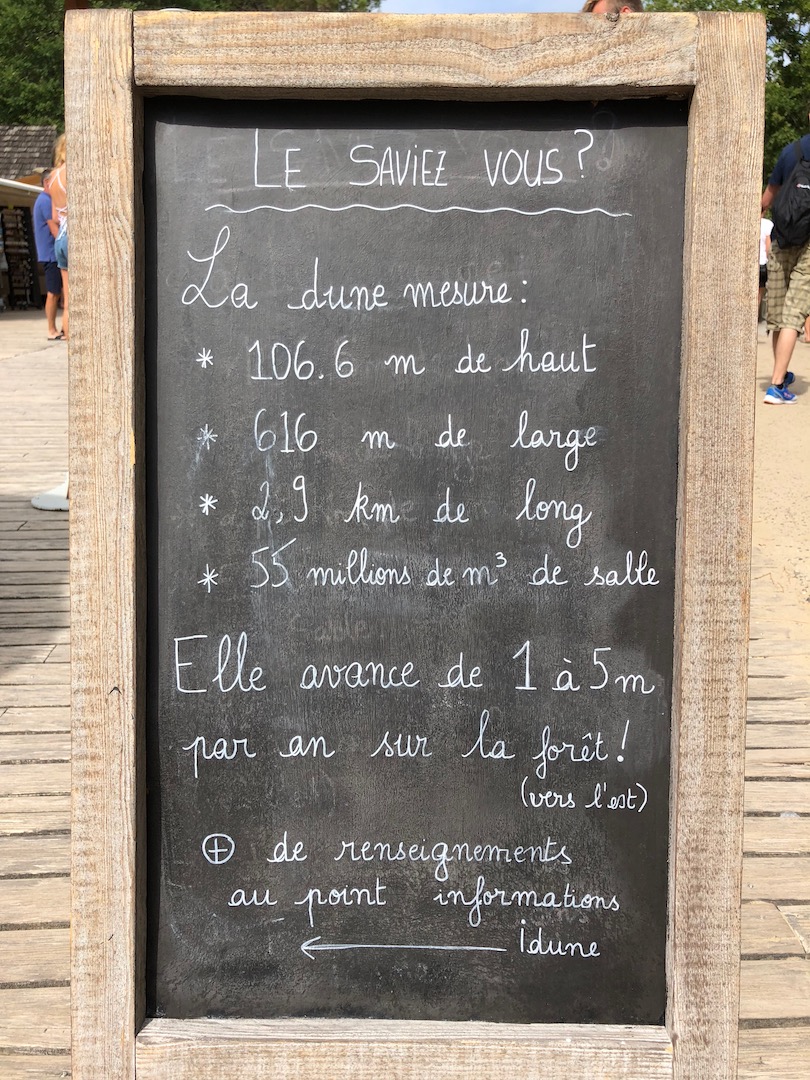 LE SAVIEZ VOUS?
La dune mesure:
* 106.6 m de haut
* 616 m de large
* 2,9 km de long
* 55 millions de m³ de salle
Elle avance de 1 à 5m
par an sur la forêt!
(vers l'est)
⊕ de renseignements
au point informations
← idune